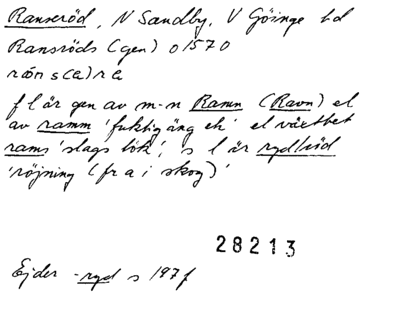 Ranseröd, N Sandby, V Göinge hd
Ransröds (gen) o 1570
rån s(e)re
f l är gen av m-n Ramn (Ravn) el
av ramm 'fuktig äng etc' el växtbet
rams 'slags lök', s l är ryd/röd
'röjning (fr a i skog)'
28213
Ejder -ryd s 197f